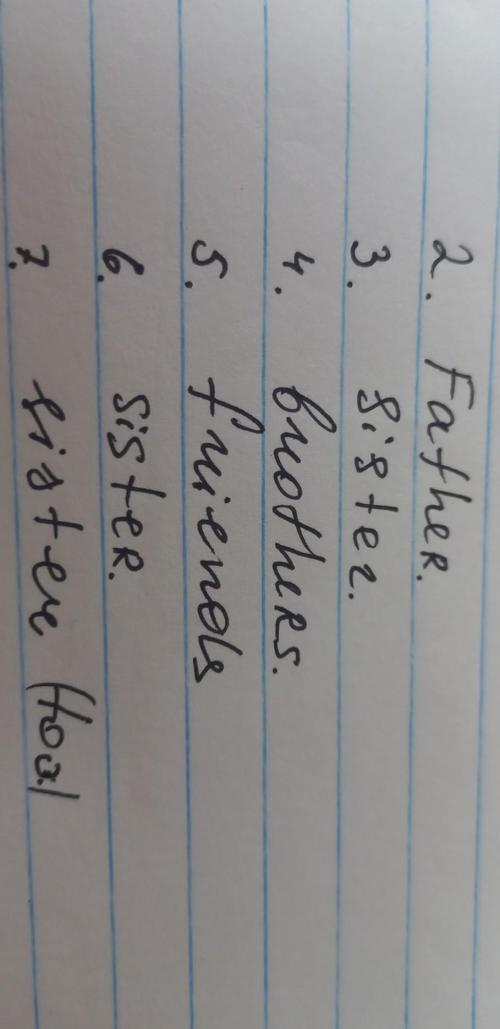 2. Father.
3. sister.
4. brothers.
5. friends
6. sister.
7. sister